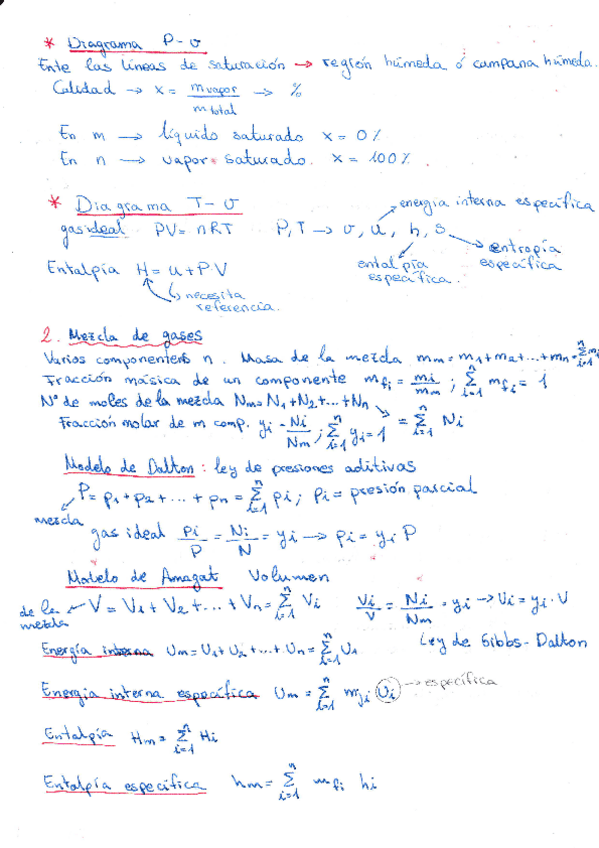 * Diagrama P-v
Ente las líneas de saturación → región húmeda ó campana húmeda.
Calidad → x = m vapor / m total → %
En m → líquido saturado x = 0%
En n → vapor saturado. x = 100%
* Diagrama T-v
→ energía interna específica
gas ideal PV = nRT P, T → v, u, h, s
entalpía específica.
entropía específica
Entalpía H = u + PV
necesita referencia.
2. Mezcla de gases
Varios componentes n. Masa de la mezcla mm = m1 + m2 + ... + mn = Σ mi (i=1, n)
Fracción másica de un componente mfi = mi / mm ; Σ mfi = 1 (i=1, n)
Nº de moles de la mezcla Nm = N1 + N2 + ... + Nn
= Σ Ni (i=1, n)
Fracción molar de m comp. yi = Ni / Nm ; Σ yi = 1 (i=1, n)
Modelo de Dalton : ley de presiones aditivas
P = p1 + p2 + ... + pn = Σ pi ; pi = presión parcial (i=1, n)
mezcla
gas ideal pi / P = Ni / N = yi → pi = yi P
Modelo de Amagat Volumen
de la mezcla ← V = V1 + V2 + ... + Vn = Σ Vi (i=1, n) Vi / V = Ni / Nm = yi → Vi = yi · V
Ley de Gibbs-Dalton
Energía interna Um = U1 + U2 + ... + Un = Σ U1 (i=1, n)
Energia interna específica Um = Σ mfi Ui → específica (i=1, n)
Entalpía Hm = Σ Hi (i=1, n)
Entalpía específica hm = Σ mfi hi (i=1, n)